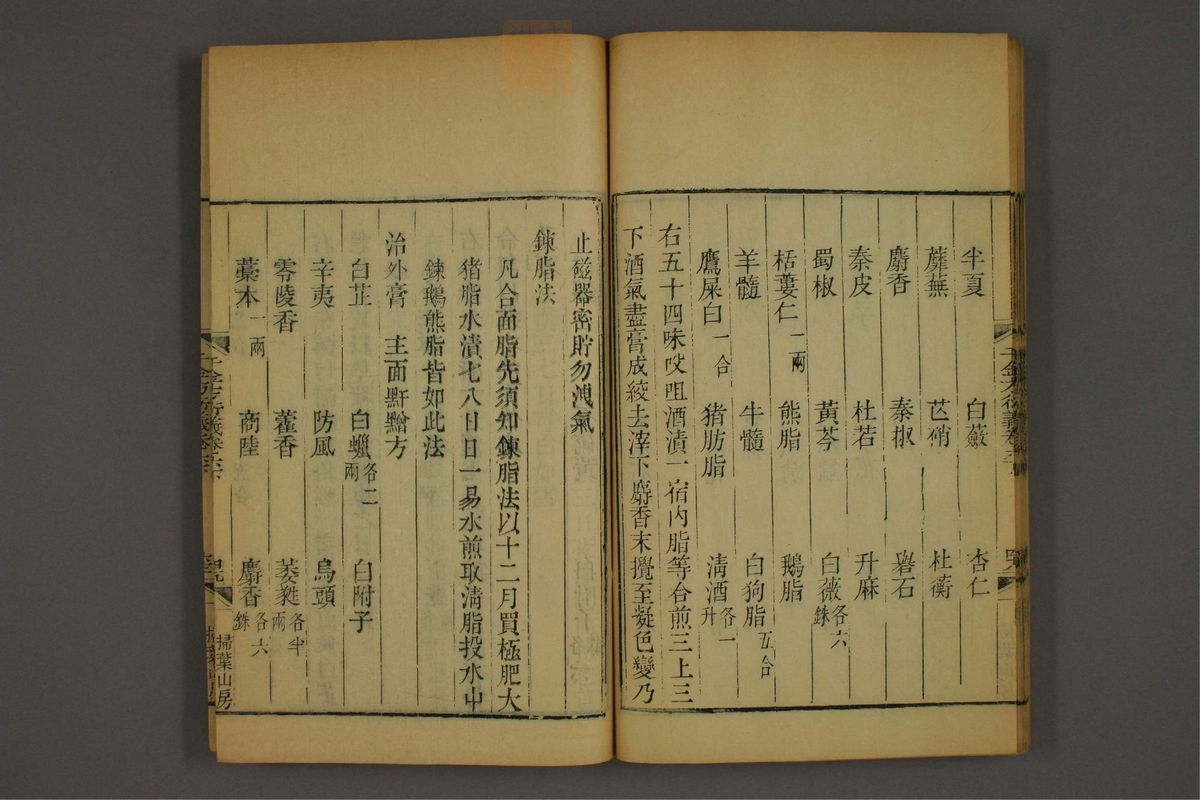 半夏　白蘞　杏仁
蘼蕪　芒硝　杜蘅
麝香　秦椒　礜石
秦皮　杜若　升麻
蜀椒　黃芩　白薇各六銖
栝蔞仁一兩　熊脂　鵝脂
羊髓　牛髓　白狗脂五合
鷹屎白一合　猪肪脂　清酒各一升
右五十四味㕮咀酒漬一宿內脂等合煎三上三
下酒氣盡膏成絞去滓下麝香末攪至凝色變乃
止磁器密貯勿洩氣
鍊脂法
凡合面脂先須知鍊脂法以十二月買極肥大
猪脂水漬七八日日一易水煎取清脂投水中
鍊鵝熊脂皆如此法
治外膏　主面䵟䵳方
白芷　白蠟各二兩　白附子
辛夷　防風　烏頭
零陵香　藿香　萎蕤各半兩
藁本一兩　商陸　麝香各六銖
千金方衍義卷六下
掃葉山房